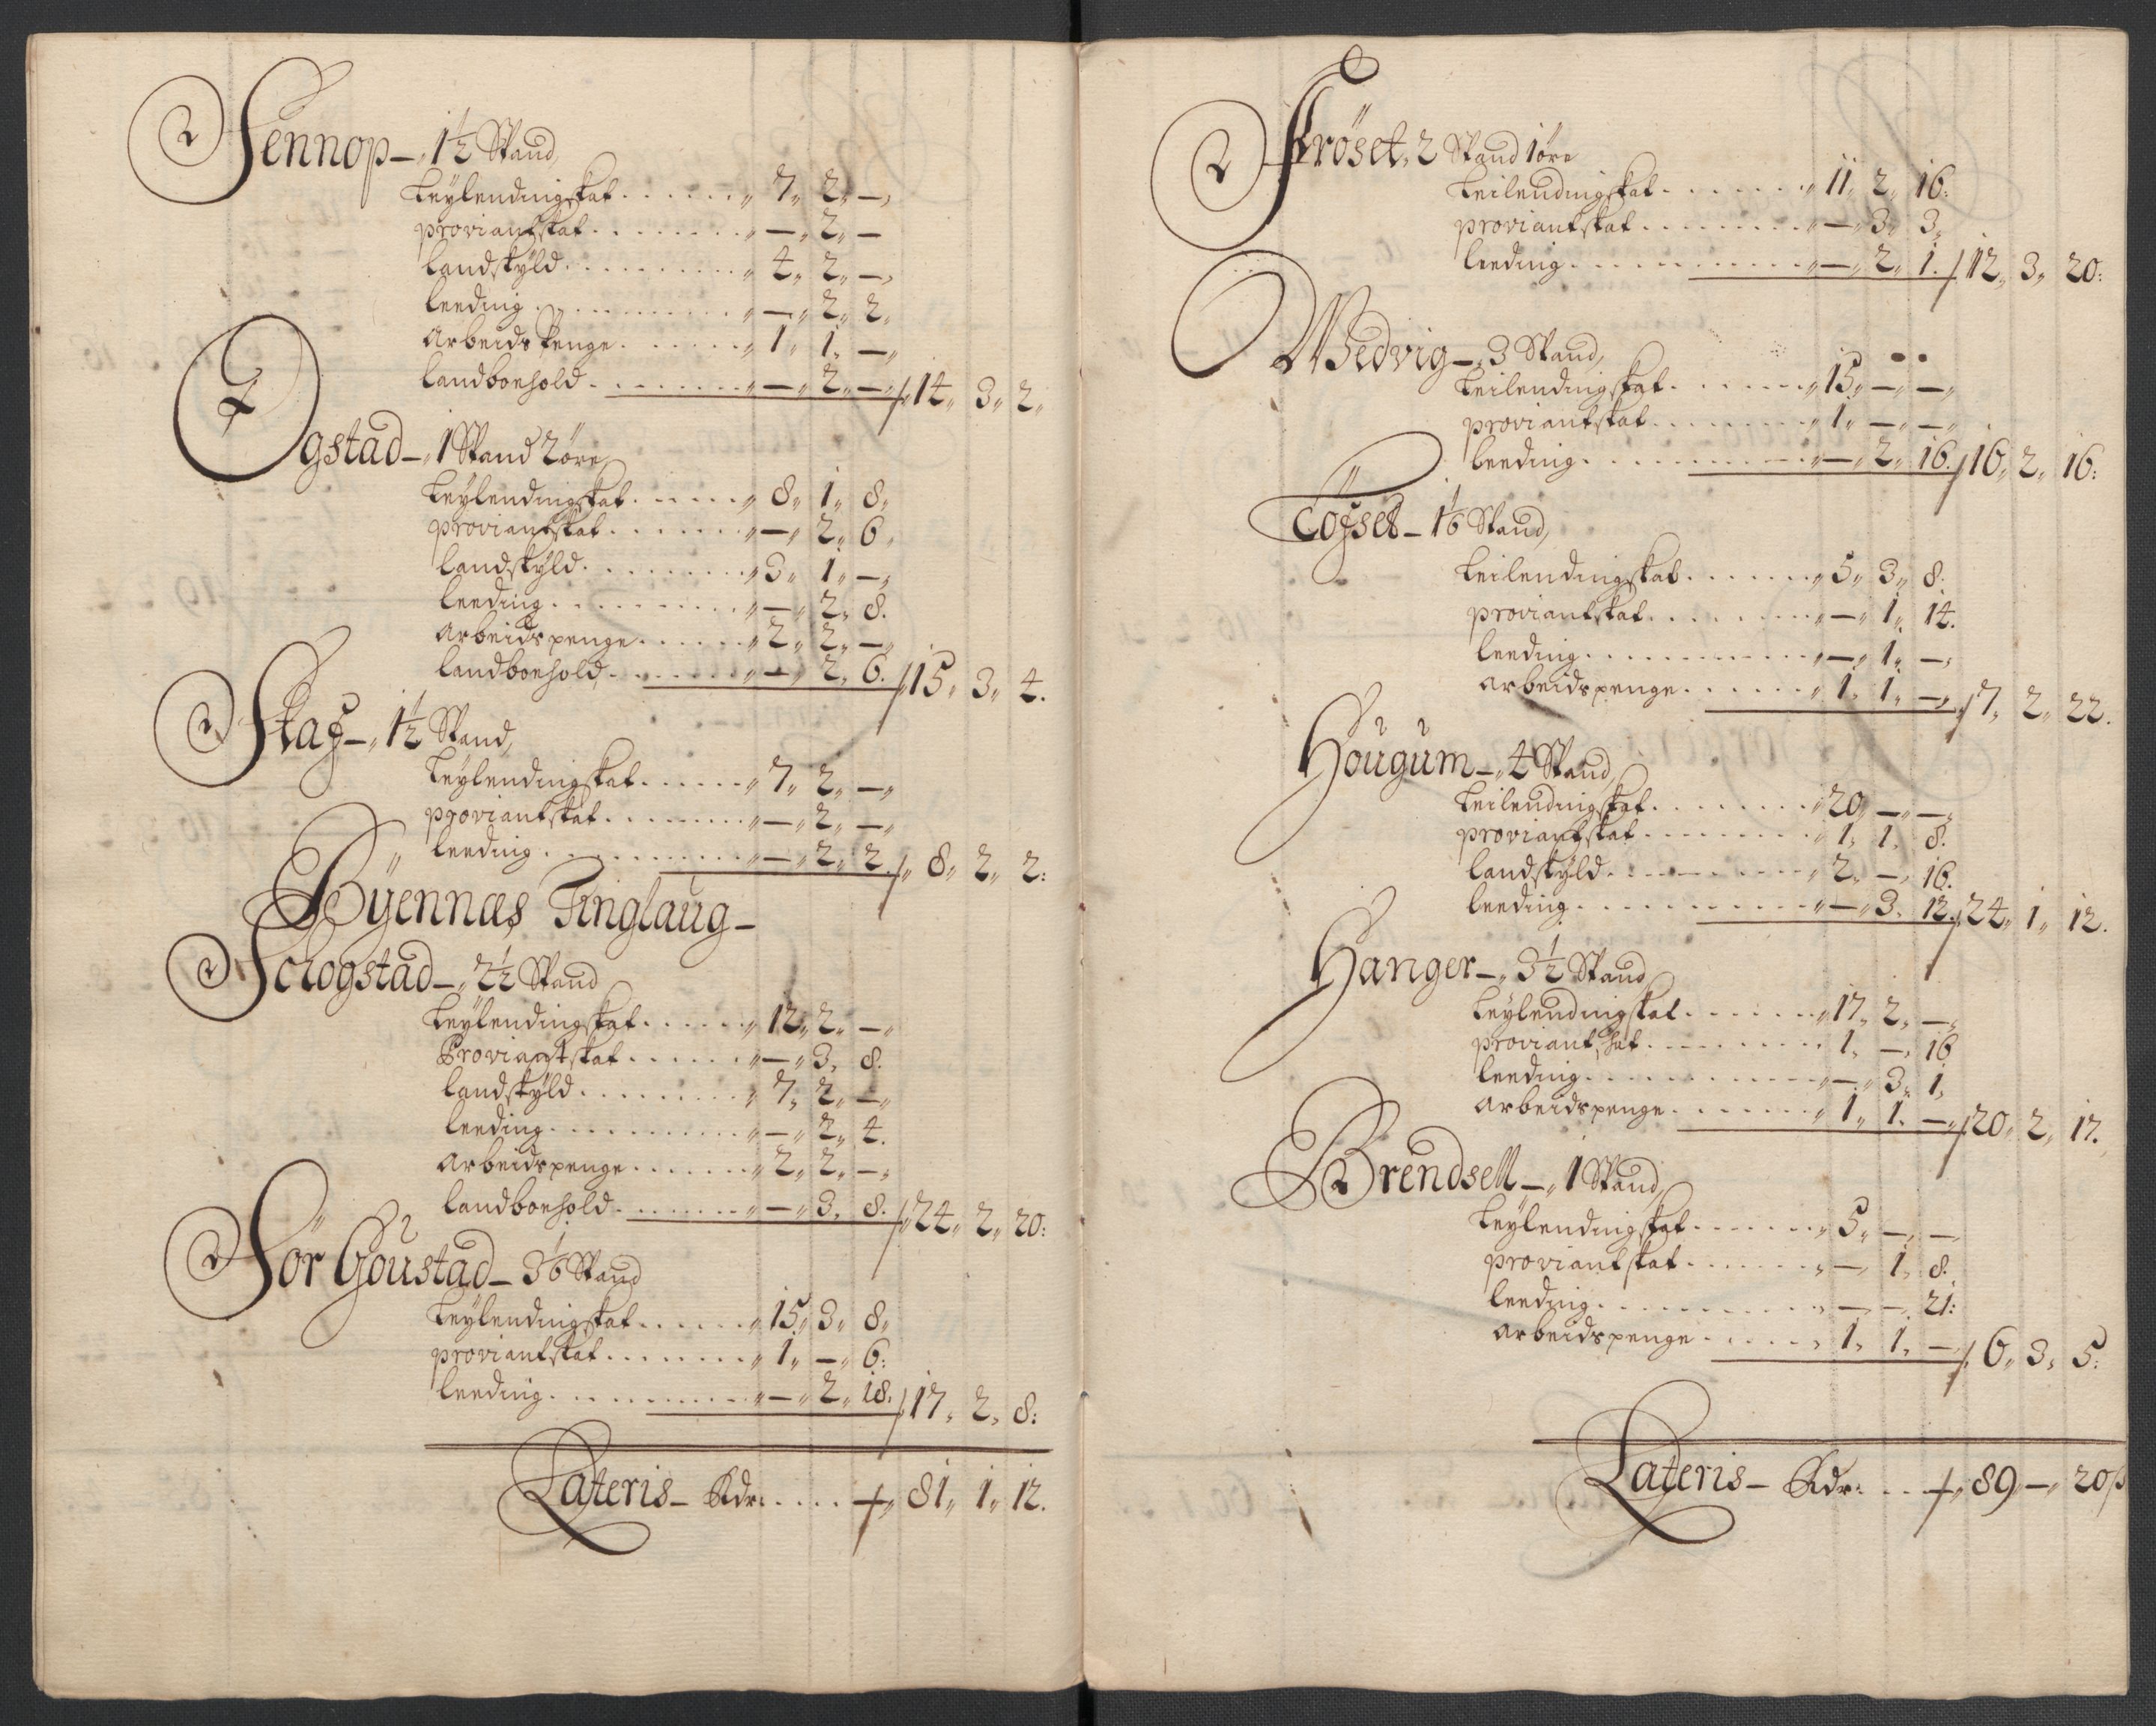 Sennop – 1½ Spand
Leylendingskat . . . . . . 7 2 –
proviantskat . . . . . . – 2 –
landskyld . . . . . . 4 2 –
leeding . . . . . . – 2 2
Arbeids Penge . . . . . . 1 1 –
landboehold . . . . . . – 2 – / 14 3 2
Ogstad – 1 Spand 2 öre
Leylendingskat . . . . . . 8 1 8
proviantskat . . . . . . – 2 6
landskyld . . . . . . 3 1 –
leeding . . . . . . – 2 8
arbeidspenge . . . . . . 2 2 –
landboehold . . . . . . – 2 6 / 15 3 4
Skaf – 1½ Spand
Leylendingskat . . . . . . 7 2 –
proviantskat . . . . . . – 2 –
leeding . . . . . . – 2 2 / 8 2 2
Byennæs Tinglaug –
Schogstad – 2½ Spand
Leylendingskat . . . . . . 12 2 –
Proviantskat . . . . . . – 3 8
landskyld . . . . . . 7 2 –
leeding . . . . . . – 2 4
Arbeidspenge . . . . . . 2 2 –
landboehold . . . . . . – 3 8 / 24 2 20
Sör Göustad – 3⅙ Spand
Leylendingskat . . . . . . 15 3 8
proviantskat . . . . . . 1 – 6
leeding . . . . . . – 2 18 / 17 2 8
Lateris – Rdr . . . . 81 1 12
Fröset 2 Spand 1 öre
Leilendingskat . . . . . . 11 2 16
proviantskat . . . . . . – 3 3
leeding . . . . . . – 2 1 / 12 3 20
Wedvig – 3 Spand
Leilendingskat . . . . . . 15 – –
proviantskat . . . . . . 1 – –
leeding . . . . . . – 2 16 / 16 2 16
Tofset – 1⅙ Spand
Leilendingskat . . . . . . 5 3 8
proviantskat . . . . . . – 1 14
leeding . . . . . . – 1 –
arbeidspenge . . . . . . 1 1 – / 7 2 22
Hougum – 4 Spand
Leilendingskat . . . . . . 20 – –
proviantskat . . . . . . 1 1 8
landskyld . . . . . . 2 – 16
leeding . . . . . . – 3 12 / 24 1 12
Hanger – 3½ Spand
Leylendingskat . . . . . . 17 2 –
proviantskat . . . . . . 1 – 16
leeding . . . . . . – 3 1
arbeidspenge . . . . . . 1 1 – / 20 2 17
Brendsell – 1 Spand
Leylendingskat . . . . . . 5 – –
proviantskat . . . . . . – 1 8
leeding . . . . . . – – 21
arbeidspenge . . . . . . 1 1 – / 6 3 5
Lateris – Rdr . . . 89 – 20 ß